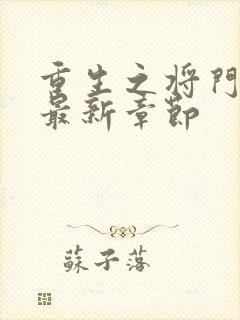 重生之将門
最新章節
蘇子落